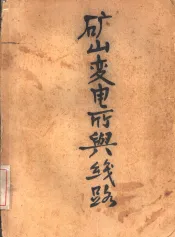 矿山变电所與线路